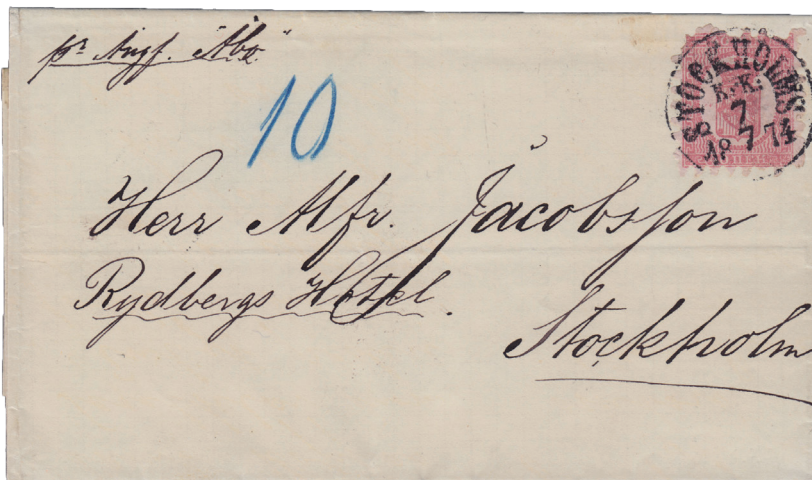 pr Ångf. "Åbo"
STOCKHOLMS
K.K:
7
18 7 74
10
Herr Alfr. Jacobsson
Rydbergs Hotel.
Stockholm